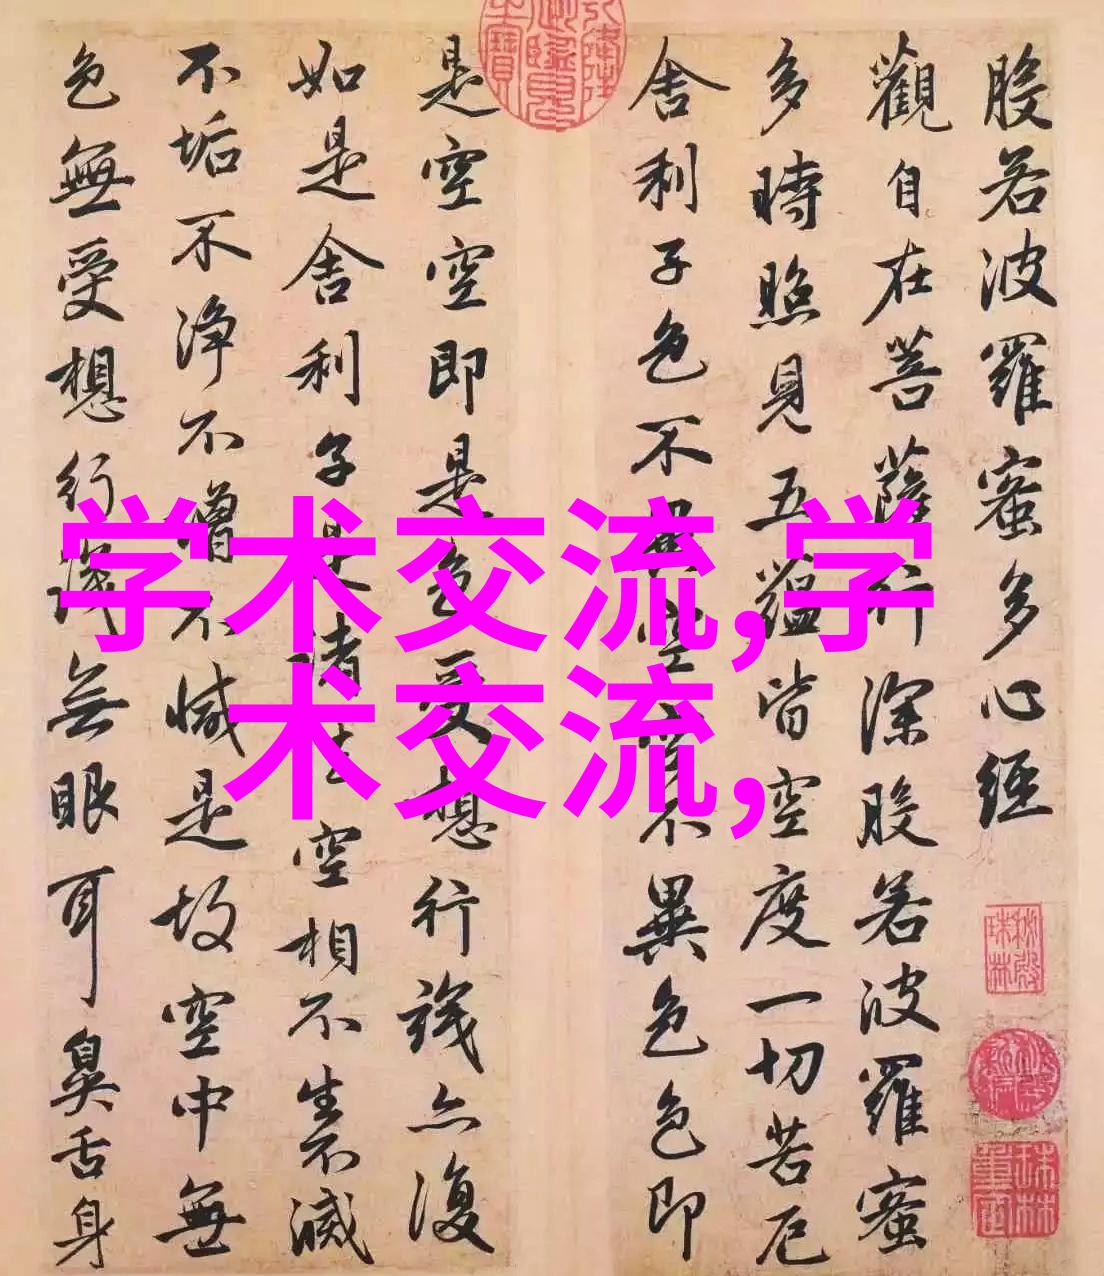 般若波羅蜜多心經
觀自在菩薩行深般若波羅蜜
多時照見五蘊皆空度一切苦厄
舍利子色不異空空不異色色即
是空空即是色受想行識亦復
如是舍利子是諸法空相不生不滅
不垢不淨不增不減是故空中無
色無受想行識無眼耳鼻舌身
秘殿珠林
学术交流,学
术交流,